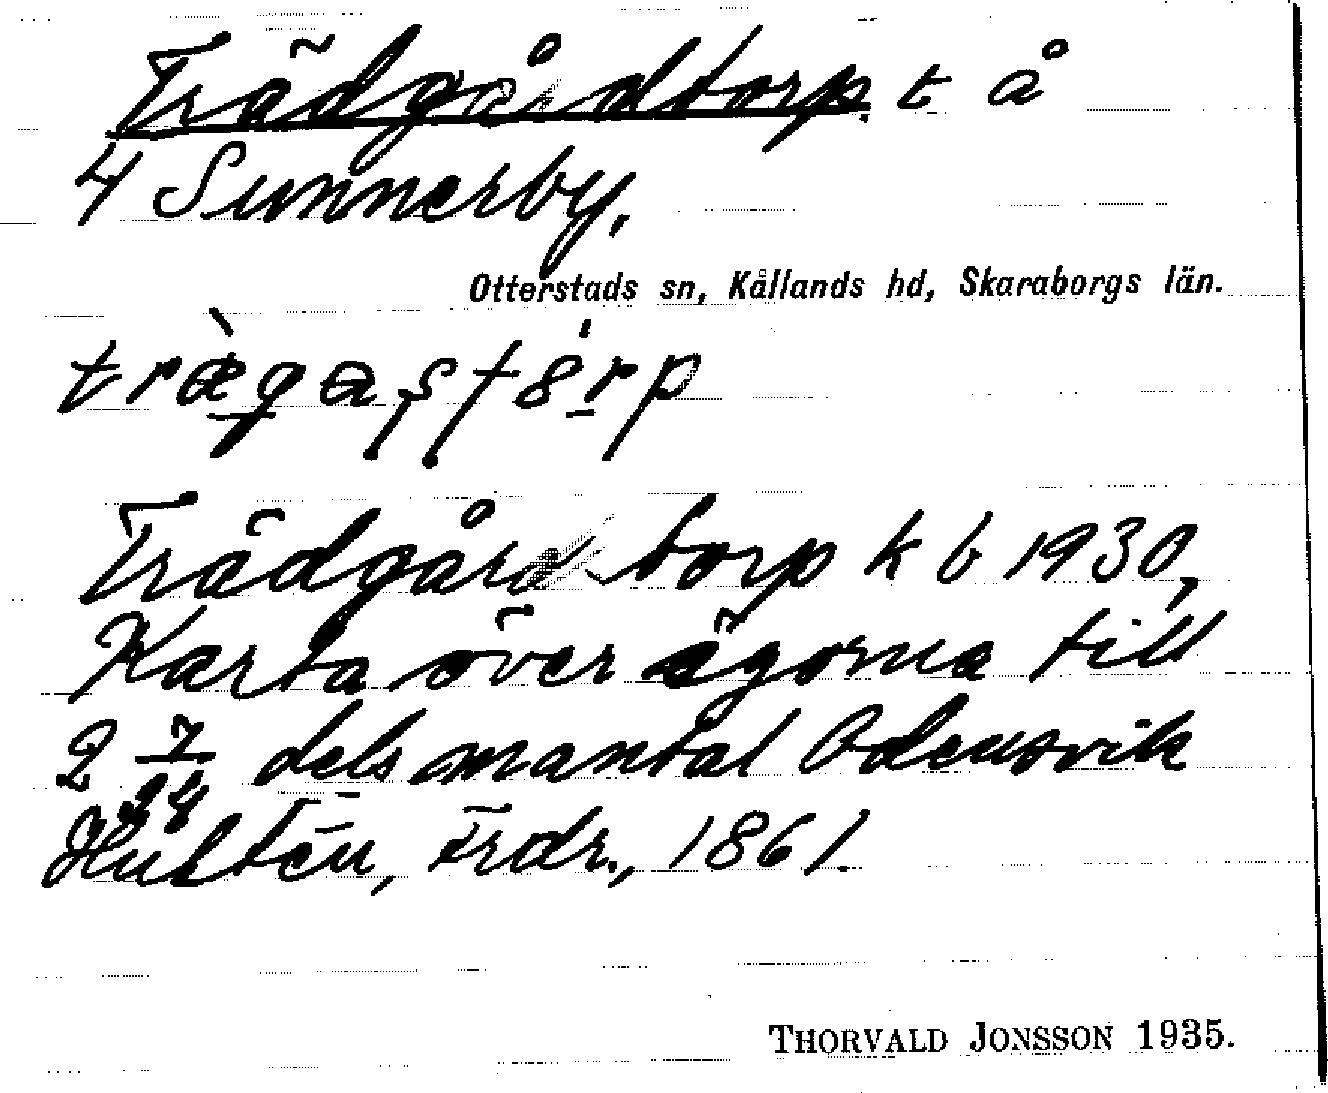 Trädgårdtorp t å
4 Sunnerby,
Otterstads sn, Kållands hd, Skaraborgs län.
Trädgårdtorp k b 1930,
Karta över ägorna till
2 7/24 dels mantal Odensvik
Hultén, Frdr., 1861.
THORVALD JONSSON 1935.